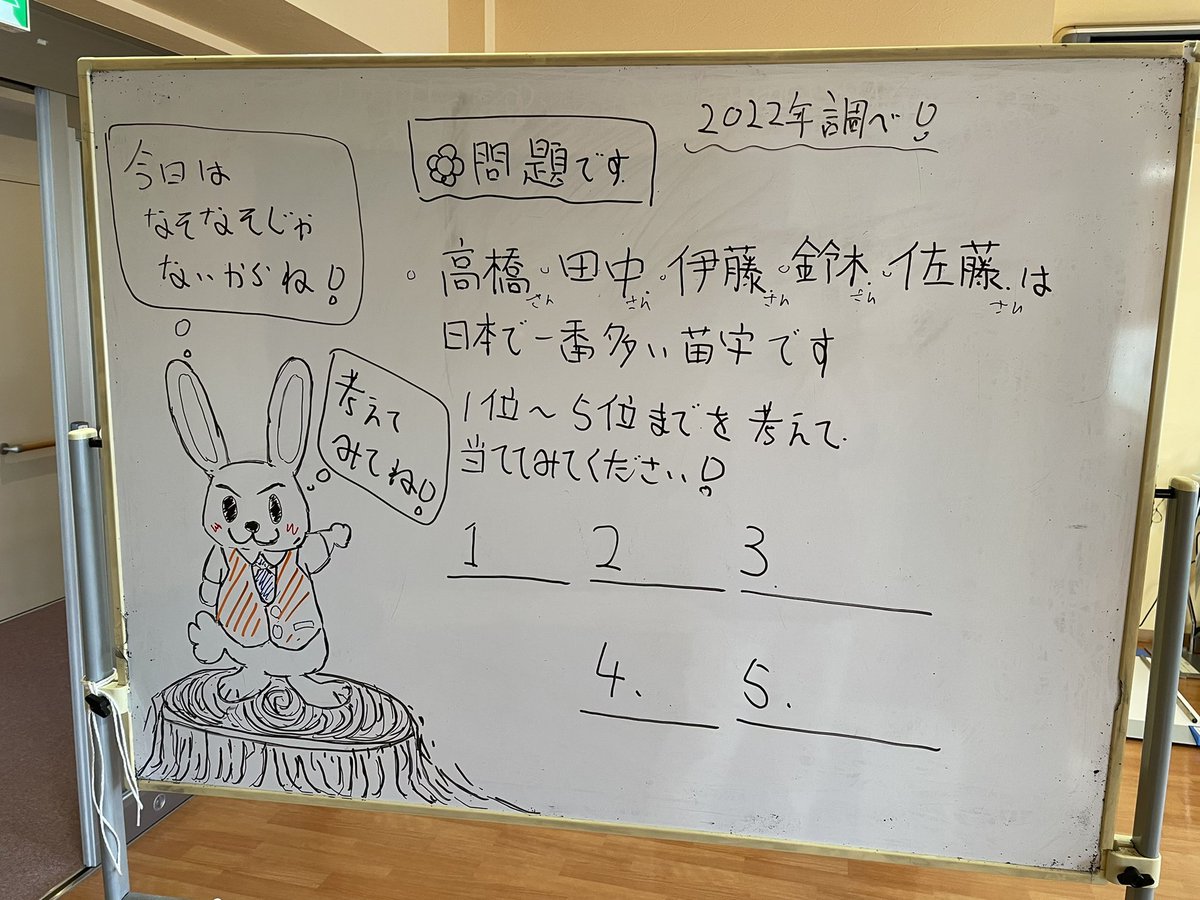 2022年調べ!
問題です
今日は
なぞなぞじゃ
ないからね!
考えて
みてね!
。高橋さん。田中さん。伊藤さん。鈴木さん。佐藤さんは
日本で一番多い苗字です
1位～5位までを考えて
当ててみてください!
1 2 3.
4. 5.